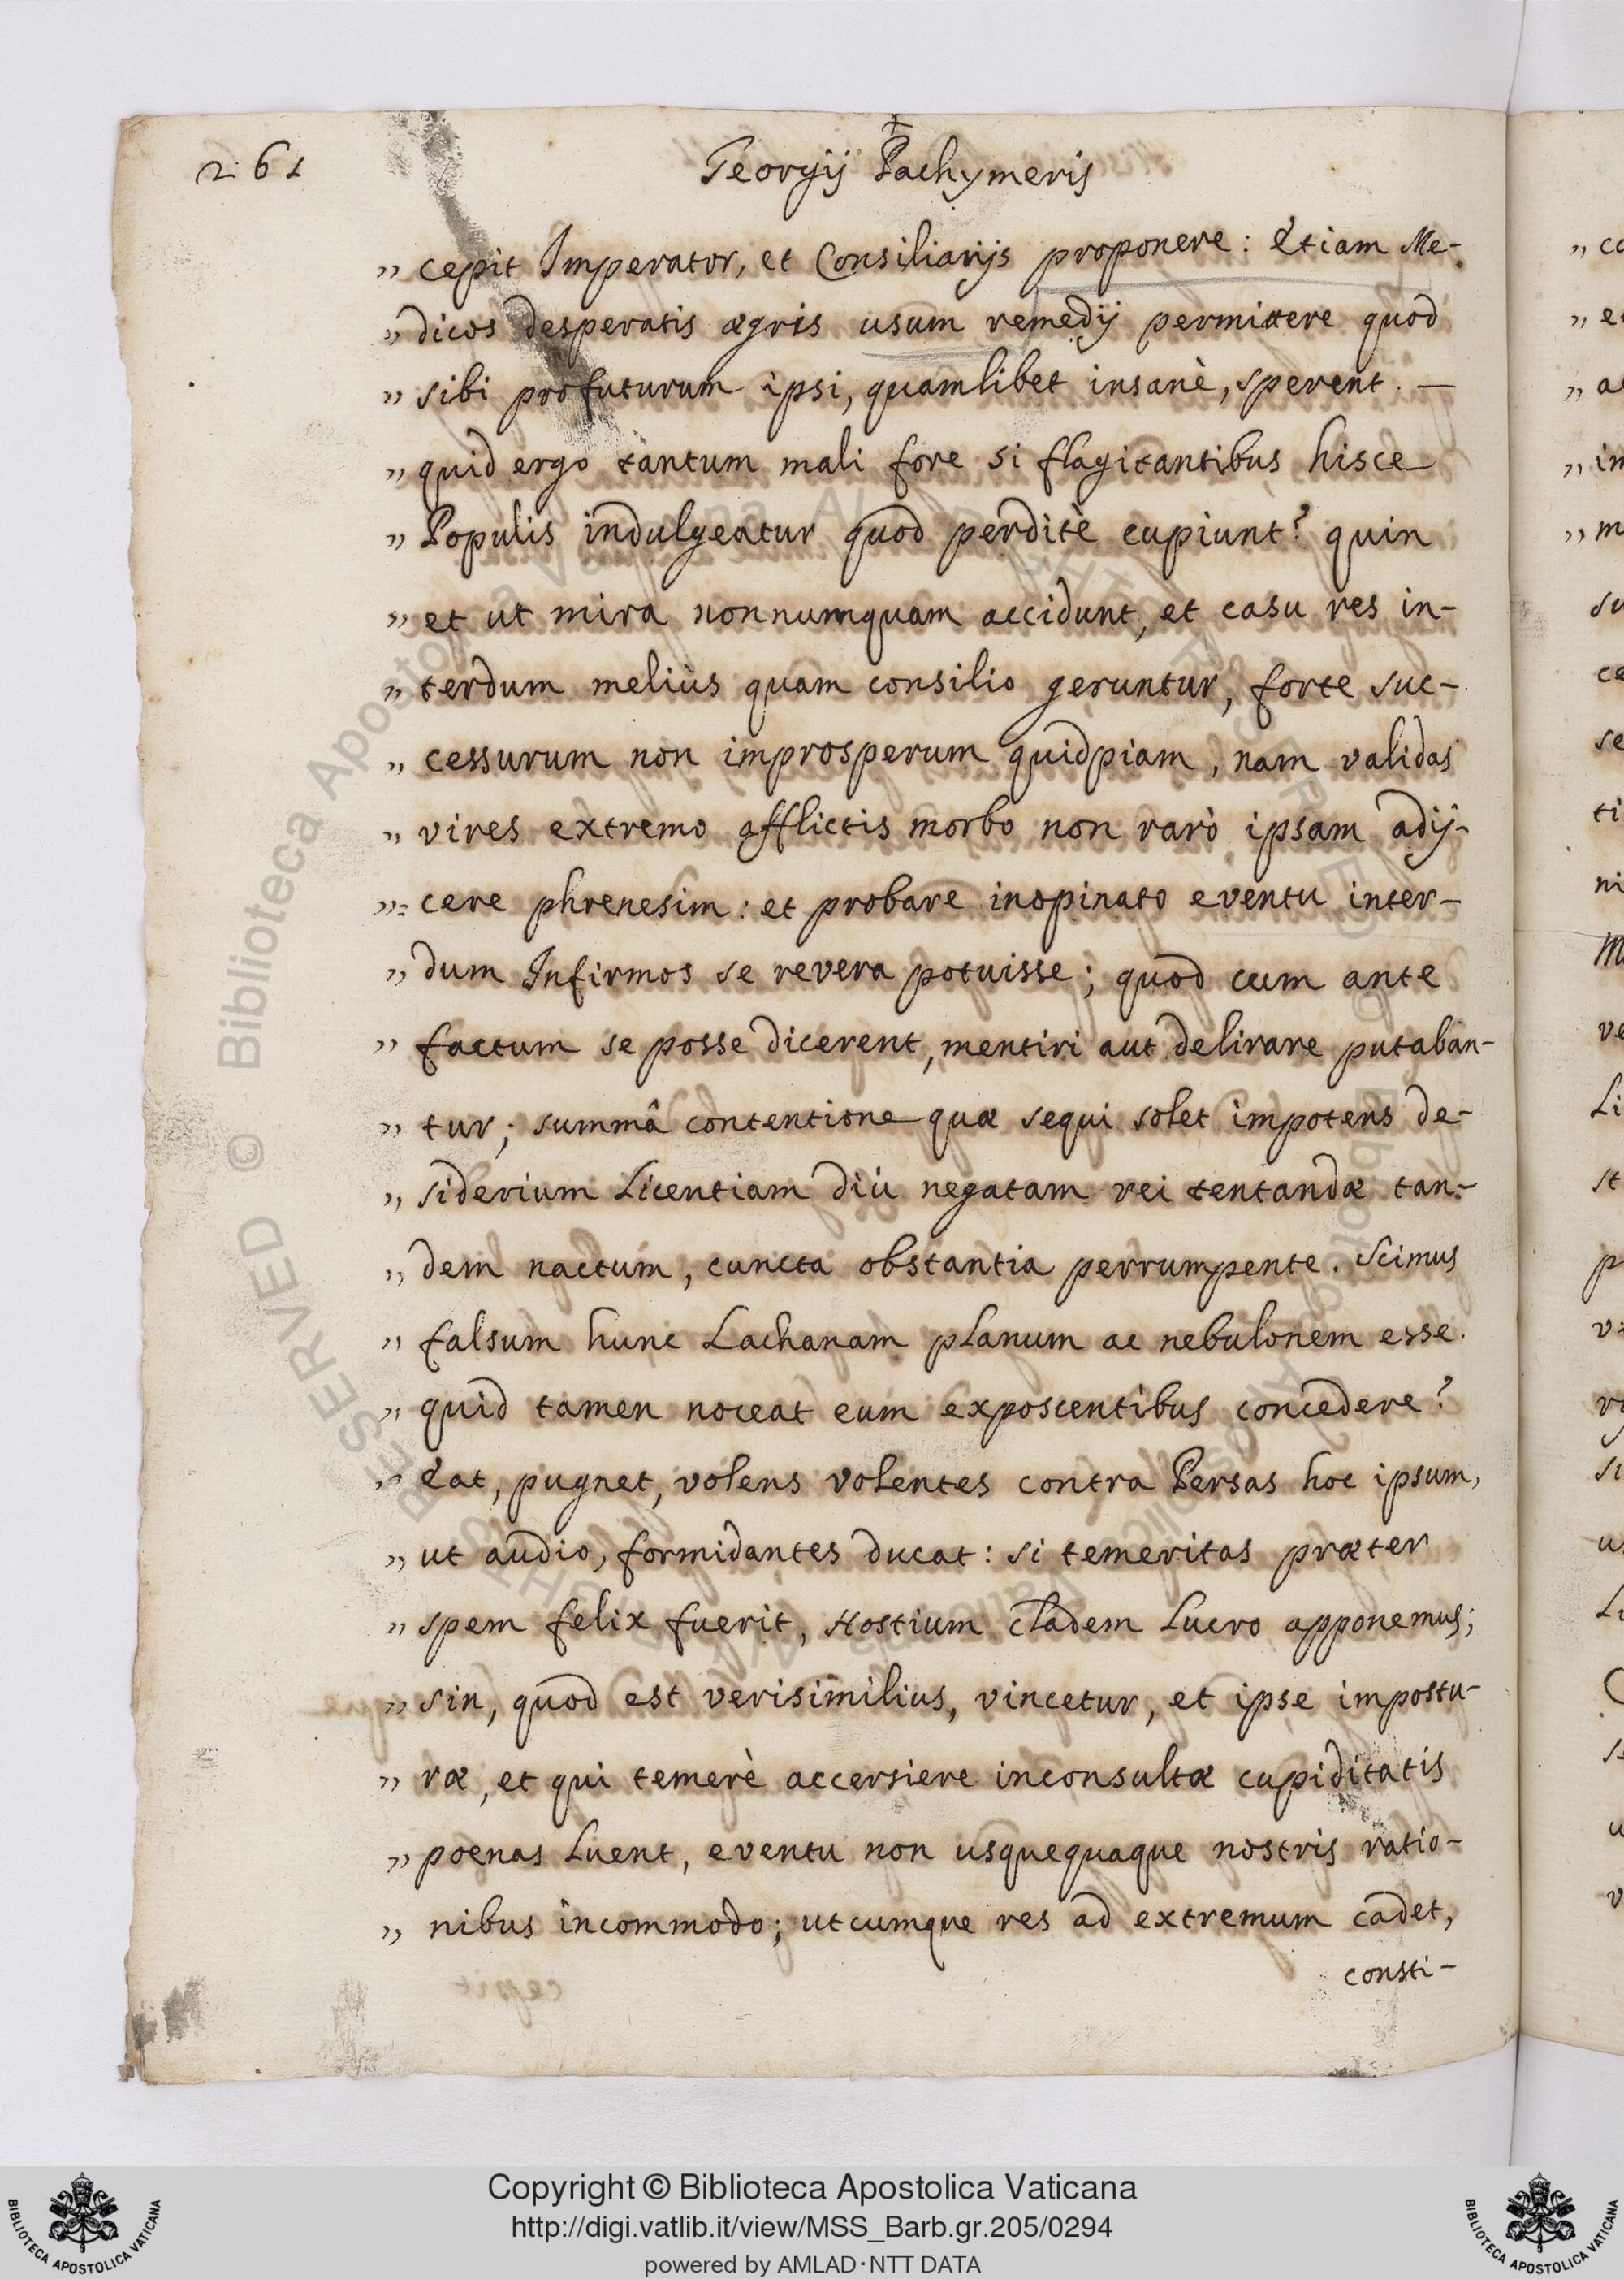 261
Georgij Pachymeris
„ cepit Imperator, et Consiliarijs proponere: Etiam Me-
„ dicos desperatis ægris usum remedij permittere quod
„ sibi profuturum ipsi, quamlibet insanè, sperent. —
„ quid ergo tantum mali fore si flagitantibus hisce
„ Populis indulgeatur quod perditè cupiunt? quin
„ et ut mira nonnumquam accidunt, et casu res in-
„ terdum meliùs quam consilio geruntur, forte suc-
„ cessurum non improsperum quidpiam, nam validas
„ vires extremo afflictis morbo non rarò ipsam adij-
„ cere phrenesim: et probare inopinato eventu inter-
„ dum Infirmos se revera potuisse; quod cum ante
„ factum se posse dicerent, mentiri aut delirare putaban-
„ tur; summâ contentione quæ sequi solet impotens de-
„ siderium Licentiam diù negatam rei tentandæ tan-
„ dem nactum, cuncta obstantia perrumpente. Scimus
„ falsum hunc Lachanam planum ac nebulonem esse.
„ quid tamen noceat eum exposcentibus concedere?
„ Eat, pugnet, volens volentes contra Persas hoc ipsum,
„ ut audio, formidantes ducat: si temeritas præter
„ spem felix fuerit, Hostium cladem Lucro apponemus;
„ sin, quod est verisimilius, vincetur, et ipse impostu-
„ ræ, et qui temerè accersiere inconsultæ cupiditatis
„ poenas Luent, eventu non usquequaque nostris ratio-
„ nibus incommodo; utcumque res ad extremum cadet,
consti-
Copyright © Biblioteca Apostolica Vaticana
http://digi.vatlib.it/view/MSS_Barb.gr.205/0294
powered by AMLAD·NTT DATA
BIBLIOTECA APOSTOLICA VATICANA
BIBLIOTECA APOSTOLICA VATICANA